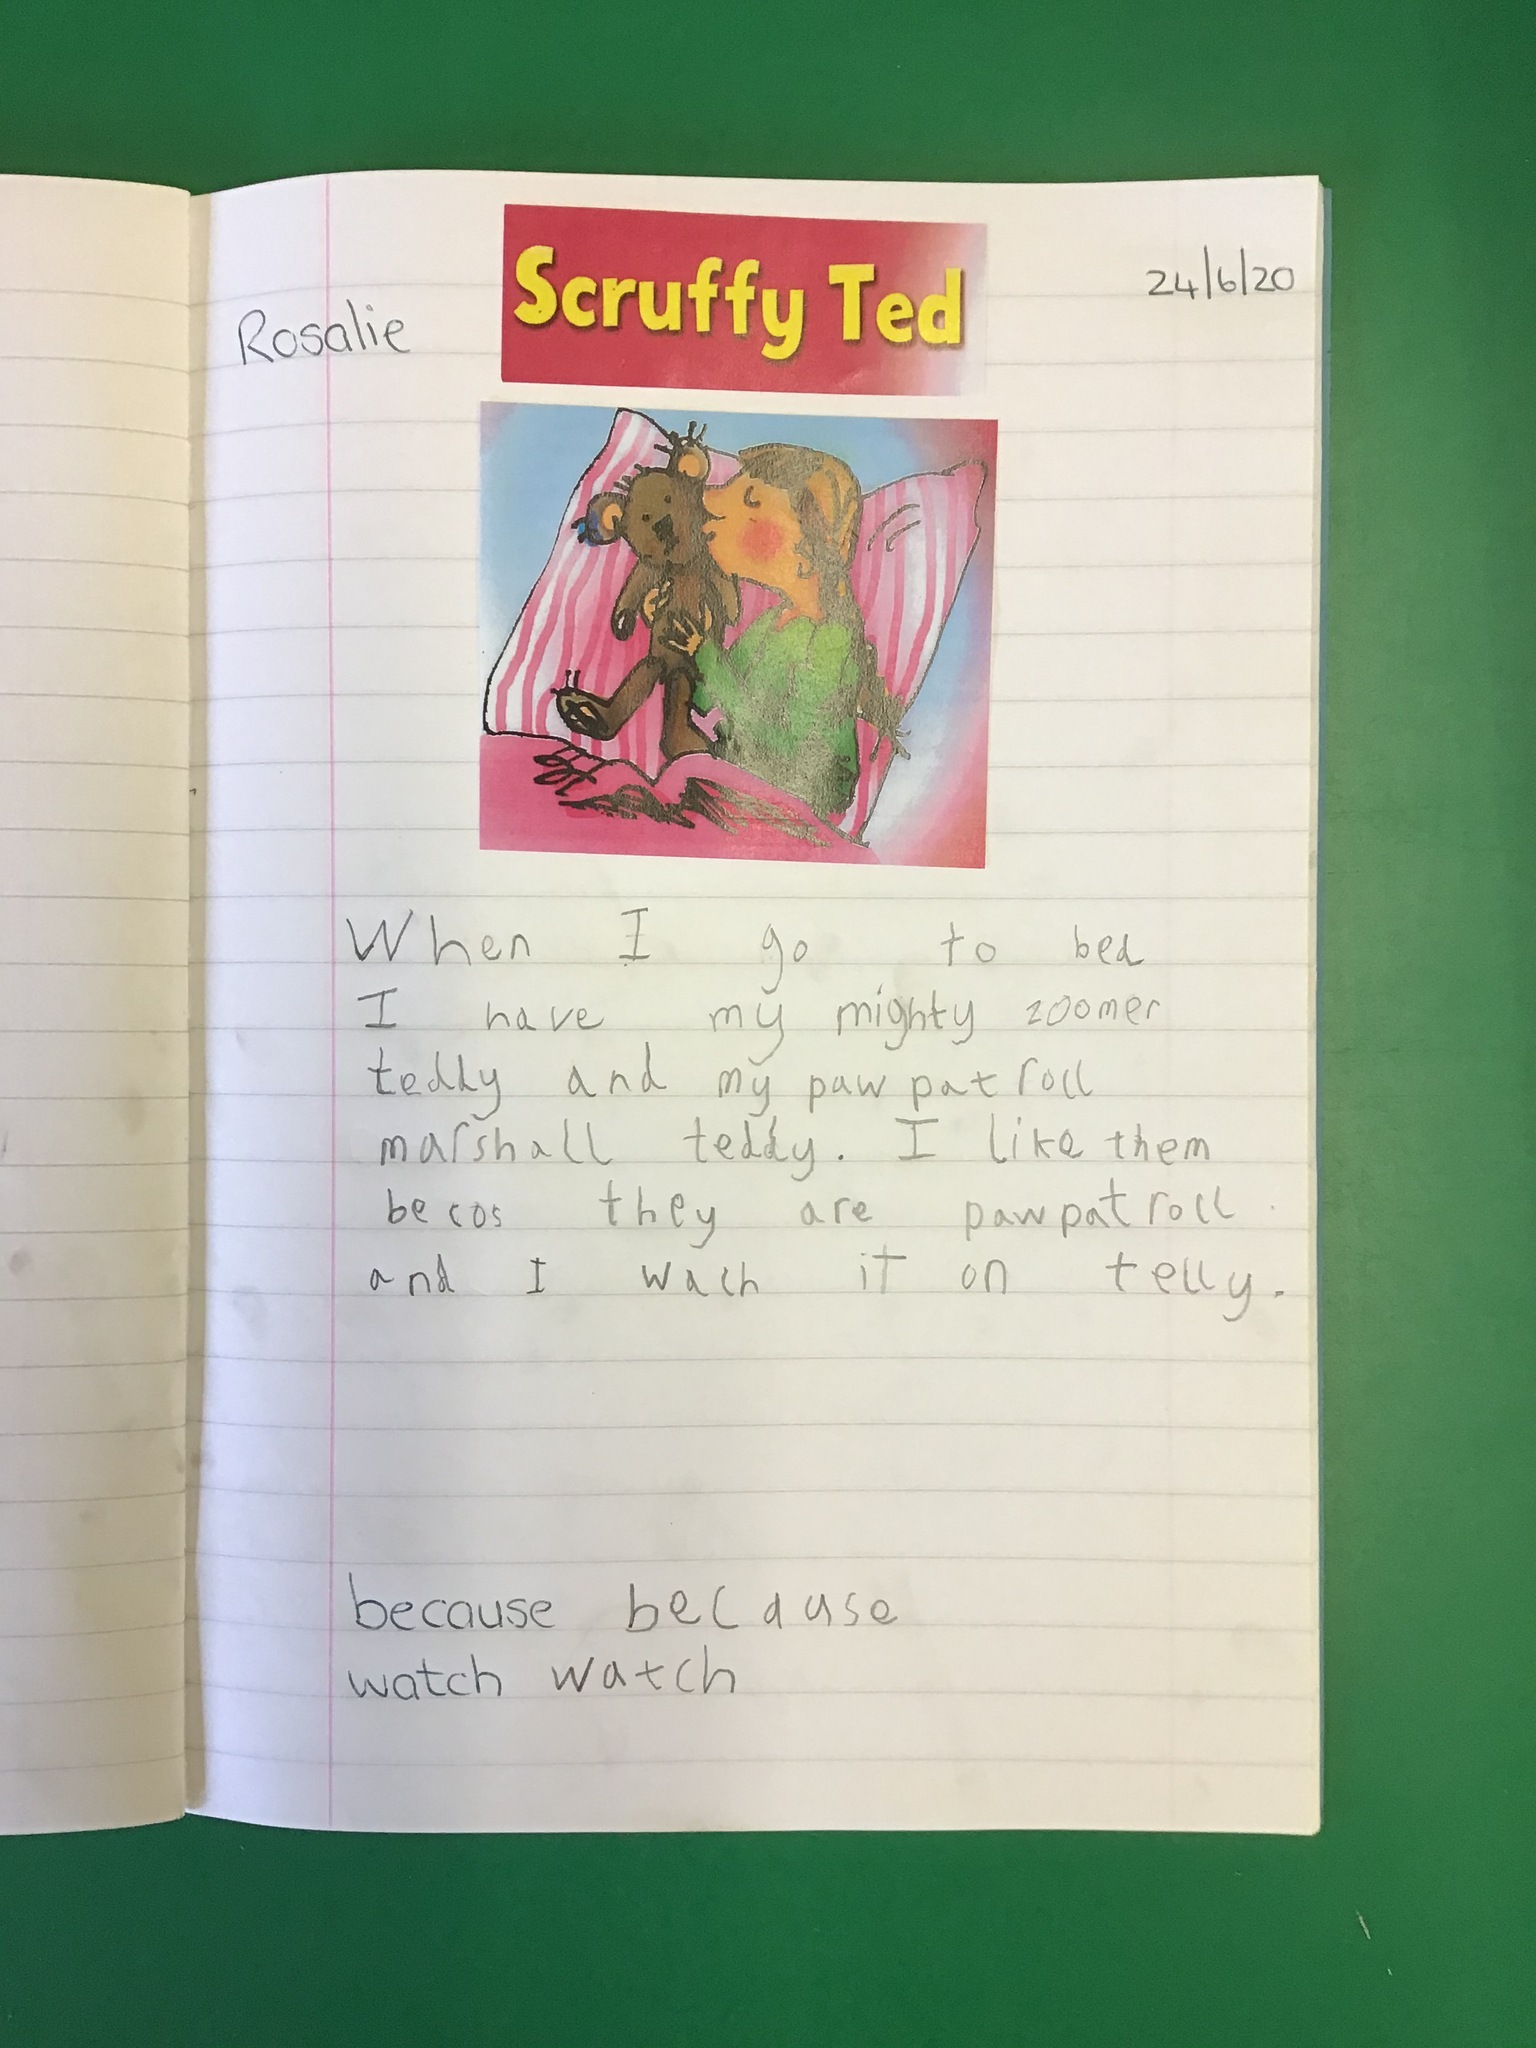 Scruffy Ted
24/6/20
Rosalie
When I go to bed
I have my mighty zoomer
teddy and my paw patroll
marshall teddy. I like them
becos they are pawpatroll
and I wach it on telly.
because because
watch watch